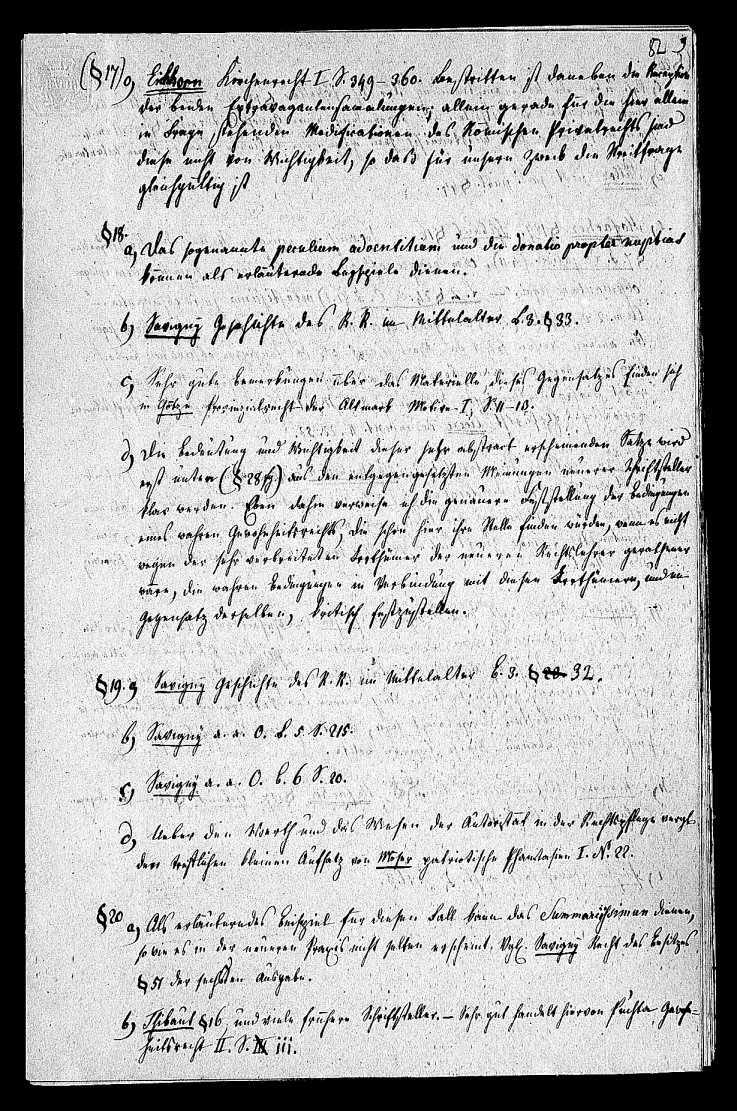 82 9
(§17) g) Eichhorn Kirchenrecht I S. 349-360. Bestritten ist daneben die Reception
der beiden Extravagantensammlungen; allein gerade für die hier allein
in Frage stehenden Modificationen des Römischen Privatrechts sind
diese nicht von Wichtigkeit, so daß für unsern Zweck die Streitfrage
gleichgültig ist
§18.
a) Das sogenannte peculium adventitium und die donatio propter nuptias
können als erläuternde Beyspiele dienen.
b) Savigny Geschichte des R. R. im Mittelalter B. 3. § 33.
c) Sehr gute Bemerkungen über das Materielle dieses Gegensatzes finden sich
in Götze Provinzialrecht der Altmark Motive I, S. 11-13.
d) Die Bedeutung und Wichtigkeit dieser sehr abstract erscheinenden Sätze wird
erst unten (§ 28 fg) aus den entgegengesetzten Meinungen neuerer Schriftsteller
klar werden. Eben dahin verweise ich die genauere Feststellung der Bedingungen
eines wahren Gewohnheitsrechts, die schon hier ihre Stelle finden würden, wenn es nicht
wegen der sehr verbreiteten Irrthümer der neueren Rechtslehrer gerathener
wäre, die wahren Bedingungen in Verbindung mit diesen Irrthümern, und im
Gegensatz derselben, kritisch festzustellen.
§19. a) Savigny Geschichte des R. R. im Mittelalter B. 3. § 20 32.
b) Savigny a. a. O. B. 5 S. 215.
c) Savigny a. a. O. B. 6 S. 20.
d) Ueber den Werth und das Wesen der Autorität in der Rechtspflege vergl.
den trefflichen kleinen Aufsatz von Möser patriotische Phantasien I. N. 22.
§20 a) Als erläuterndes Beispiel für diesen Fall kann das Summariissimum dienen,
so wie es in der neueren Praxis nicht selten erscheint. Vgl. Savigny Recht des Besitzes
§ 51 der sechsten Ausgabe.
b) Thibaut §16, und viele frühere Schriftsteller. – Sehr gut handelt hiervon Puchta, Gewohn=
heitsrecht II. S. iii.